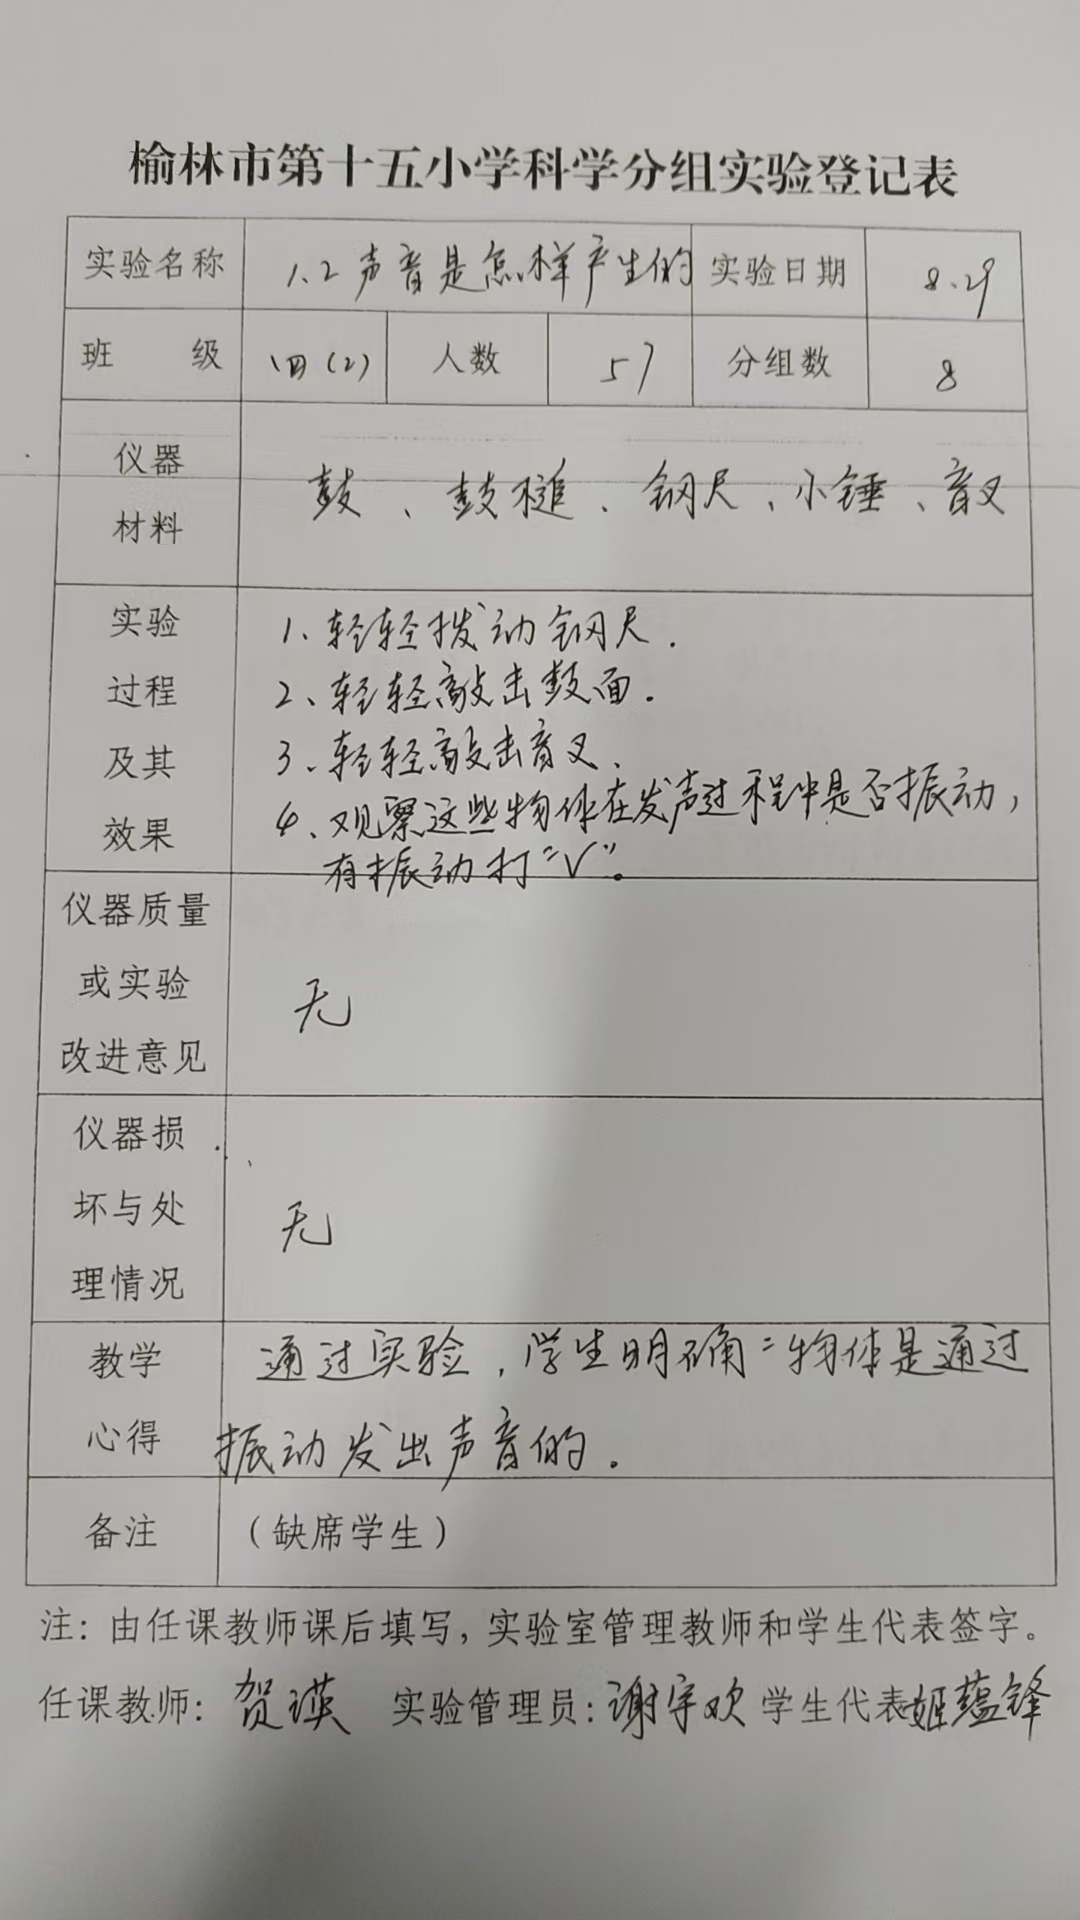 榆林市第十五小学科学分组实验登记表
实验名称 1.2声音是怎样产生的 实验日期 8.29
班 级 四(2) 人数 57 分组数 8
仪器
材料
鼓、鼓槌、钢尺、小锤、音叉
实验
过程
及其
效果
1、轻轻拨动钢尺.
2、轻轻敲击鼓面.
3、轻轻敲击音叉、
4、观察这些物体在发声过程中是否振动,
有振动打“√”。
仪器质量
或实验
改进意见
无
仪器损
坏与处
理情况
无
教学
心得
通过实验,学生明确:物体是通过
振动发出声音的.
备注 (缺席学生)
注:由任课教师课后填写,实验室管理教师和学生代表签字。
任课教师:贺瑛 实验管理员:谢宇欢 学生代表姬蕴锋